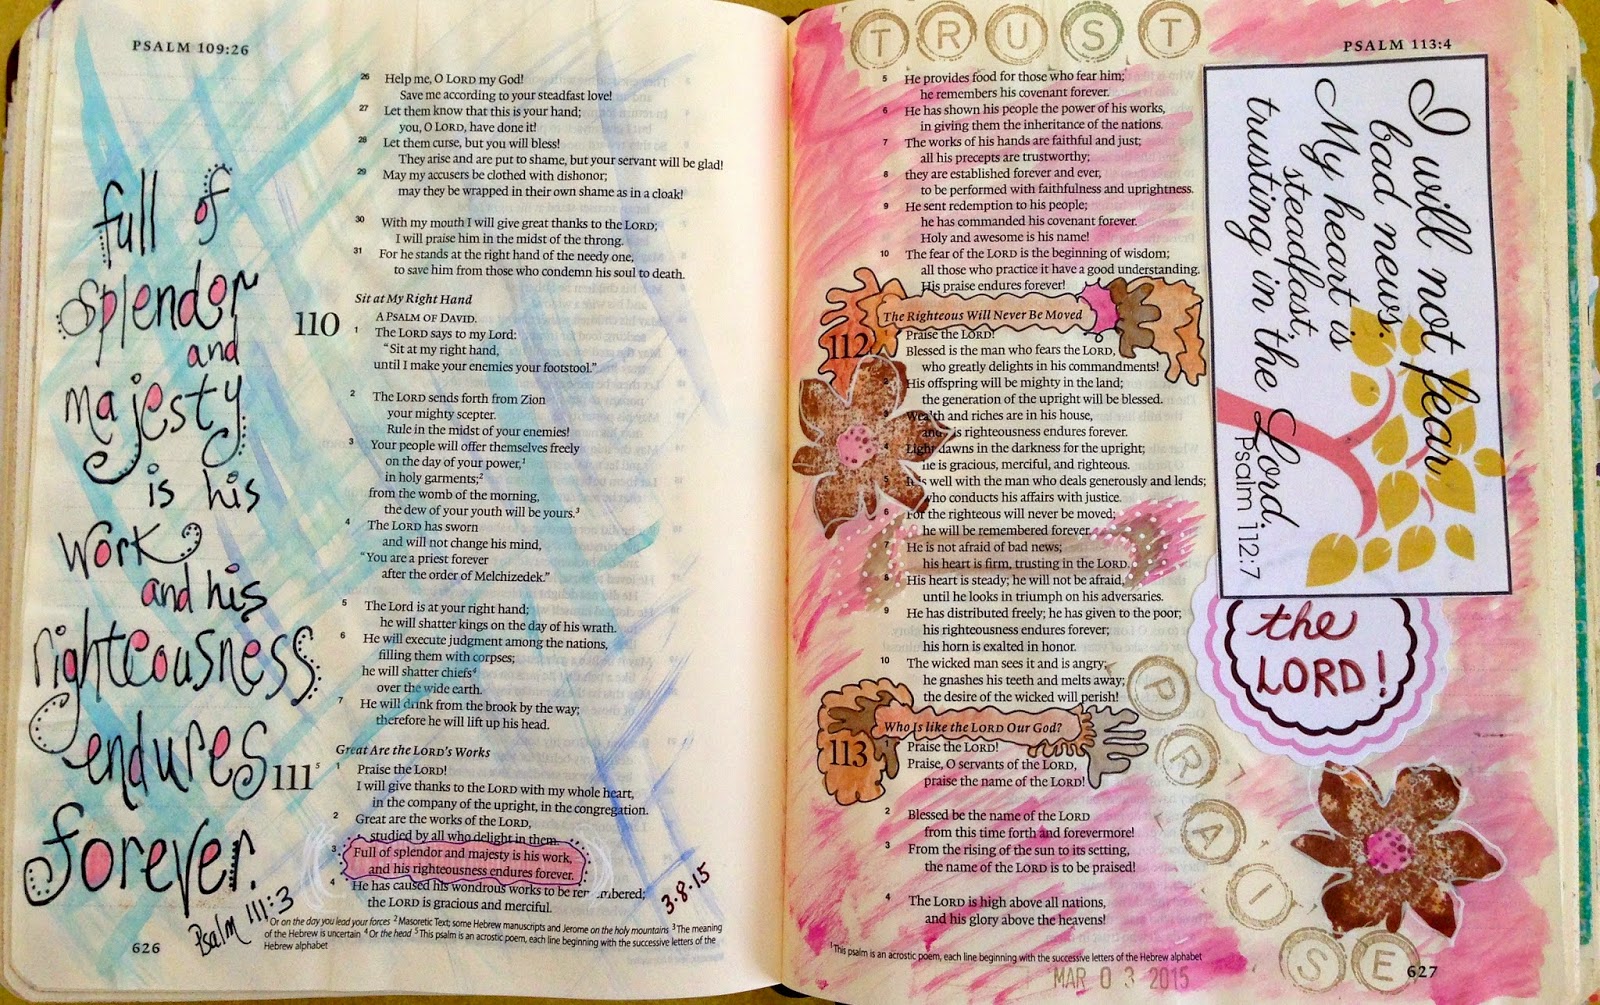 PSALM 109:26
full of
splendor
and
majesty
is his
work
and his
righteousness
endures
forever.
Psalm 111:3
26 Help me, O LORD my God!
Save me according to your steadfast love!
27 Let them know that this is your hand;
you, O LORD, have done it!
28 Let them curse, but you will bless!
They arise and are put to shame, but your servant will be glad!
29 May my accusers be clothed with dishonor;
may they be wrapped in their own shame as in a cloak!
30 With my mouth I will give great thanks to the LORD;
I will praise him in the midst of the throng.
31 For he stands at the right hand of the needy one,
to save him from those who condemn his soul to death.
Sit at My Right Hand
110 A PSALM OF DAVID.
1 The LORD says to my Lord:
“Sit at my right hand,
until I make your enemies your footstool.”
2 The LORD sends forth from Zion
your mighty scepter.
Rule in the midst of your enemies!
3 Your people will offer themselves freely
on the day of your power,1
in holy garments;2
from the womb of the morning,
the dew of your youth will be yours.3
4 The LORD has sworn
and will not change his mind,
“You are a priest forever
after the order of Melchizedek.”
5 The Lord is at your right hand;
he will shatter kings on the day of his wrath.
6 He will execute judgment among the nations,
filling them with corpses;
he will shatter chiefs4
over the wide earth.
7 He will drink from the brook by the way;
therefore he will lift up his head.
Great Are the LORD's Works
111 5 1 Praise the LORD!
I will give thanks to the LORD with my whole heart,
in the company of the upright, in the congregation.
2 Great are the works of the LORD,
studied by all who delight in them.
3 Full of splendor and majesty is his work,
and his righteousness endures forever.
4 He has caused his wondrous works to be rem mbered;
the LORD is gracious and merciful.
3.8.15
1 Or on the day you lead your forces 2 Masoretic Text; some Hebrew manuscripts and Jerome on the holy mountains 3 The meaning
of the Hebrew is uncertain 4 Or the head 5 This psalm is an acrostic poem, each line beginning with the successive letters of the
Hebrew alphabet
626
TRUST
PSALM 113:4
5 He provides food for those who fear him;
he remembers his covenant forever.
6 He has shown his people the power of his works,
in giving them the inheritance of the nations.
7 The works of his hands are faithful and just;
all his precepts are trustworthy;
8 they are established forever and ever,
to be performed with faithfulness and uprightness.
9 He sent redemption to his people;
he has commanded his covenant forever.
Holy and awesome is his name!
10 The fear of the LORD is the beginning of wisdom;
all those who practice it have a good understanding.
His praise endures forever!
The Righteous Will Never Be Moved
112 Praise the LORD!
Blessed is the man who fears the LORD,
who greatly delights in his commandments!
His offspring will be mighty in the land;
the generation of the upright will be blessed.
Wealth and riches are in his house,
and is righteousness endures forever.
4 Light dawns in the darkness for the upright;
he is gracious, merciful, and righteous.
5 is well with the man who deals generously and lends;
who conducts his affairs with justice.
6 For the righteous will never be moved;
he will be remembered forever.
7 He is not afraid of bad news;
his heart is firm, trusting in the LORD.
8 His heart is steady; he will not be afraid,
until he looks in triumph on his adversaries.
9 He has distributed freely; he has given to the poor;
his righteousness endures forever;
his horn is exalted in honor.
10 The wicked man sees it and is angry;
he gnashes his teeth and melts away;
the desire of the wicked will perish!
Who Is like the LORD Our God?
113 Praise the LORD!
Praise, O servants of the LORD,
praise the name of the LORD!
2 Blessed be the name of the LORD
from this time forth and forevermore!
3 From the rising of the sun to its setting,
the name of the LORD is to be praised!
4 The LORD is high above all nations,
and his glory above the heavens!
1 This psalm is an acrostic poem, each line beginning with the successive letters of the Hebrew alphabet
MAR 03 2015
I will not fear
bad news.
My heart is
steadfast,
trusting in the Lord.
Psalm 112:7
the
LORD!
PRAISE
627